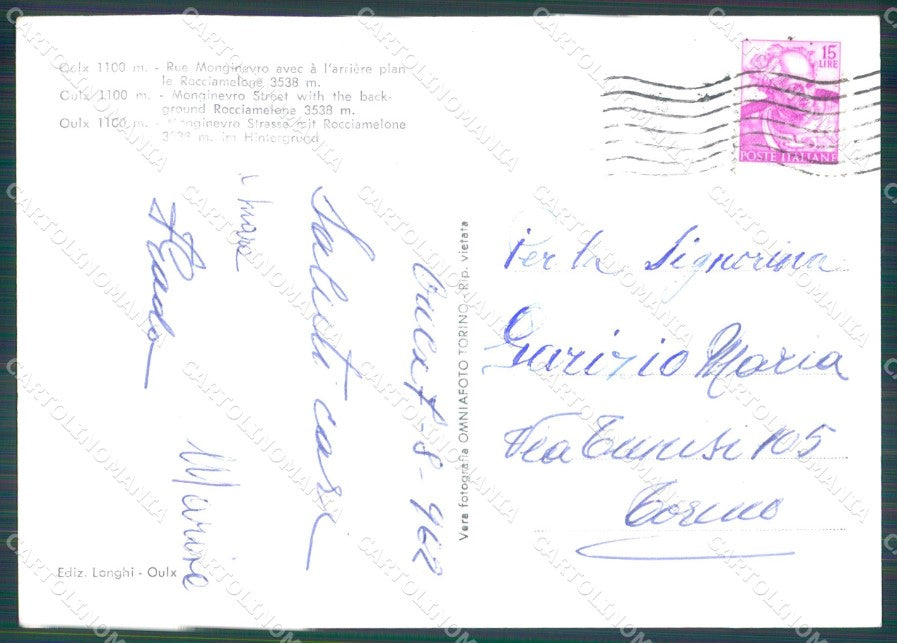 Oulx 1100 m. - Rue Monginevro avec à l'arrière plan
le Rocciamelone 3538 m.
Oulx 1100 m. - Monginevro Street with the back-
ground Rocciamelone 3538 m.
Oulx 1100 m. - Monginevro Strasse mit Rocciamelone
3538 m. im Hintergrund
15
LIRE
POSTE ITALIANE
Saluti cari
8-962
Vera fotografia OMNIAFOTO TORINO - Rip. vietata
Per la Signorina
Garizio Maria
Via Tunisi 105
Torino
Ediz. Langhi - Oulx
CARTOLINOMANIA